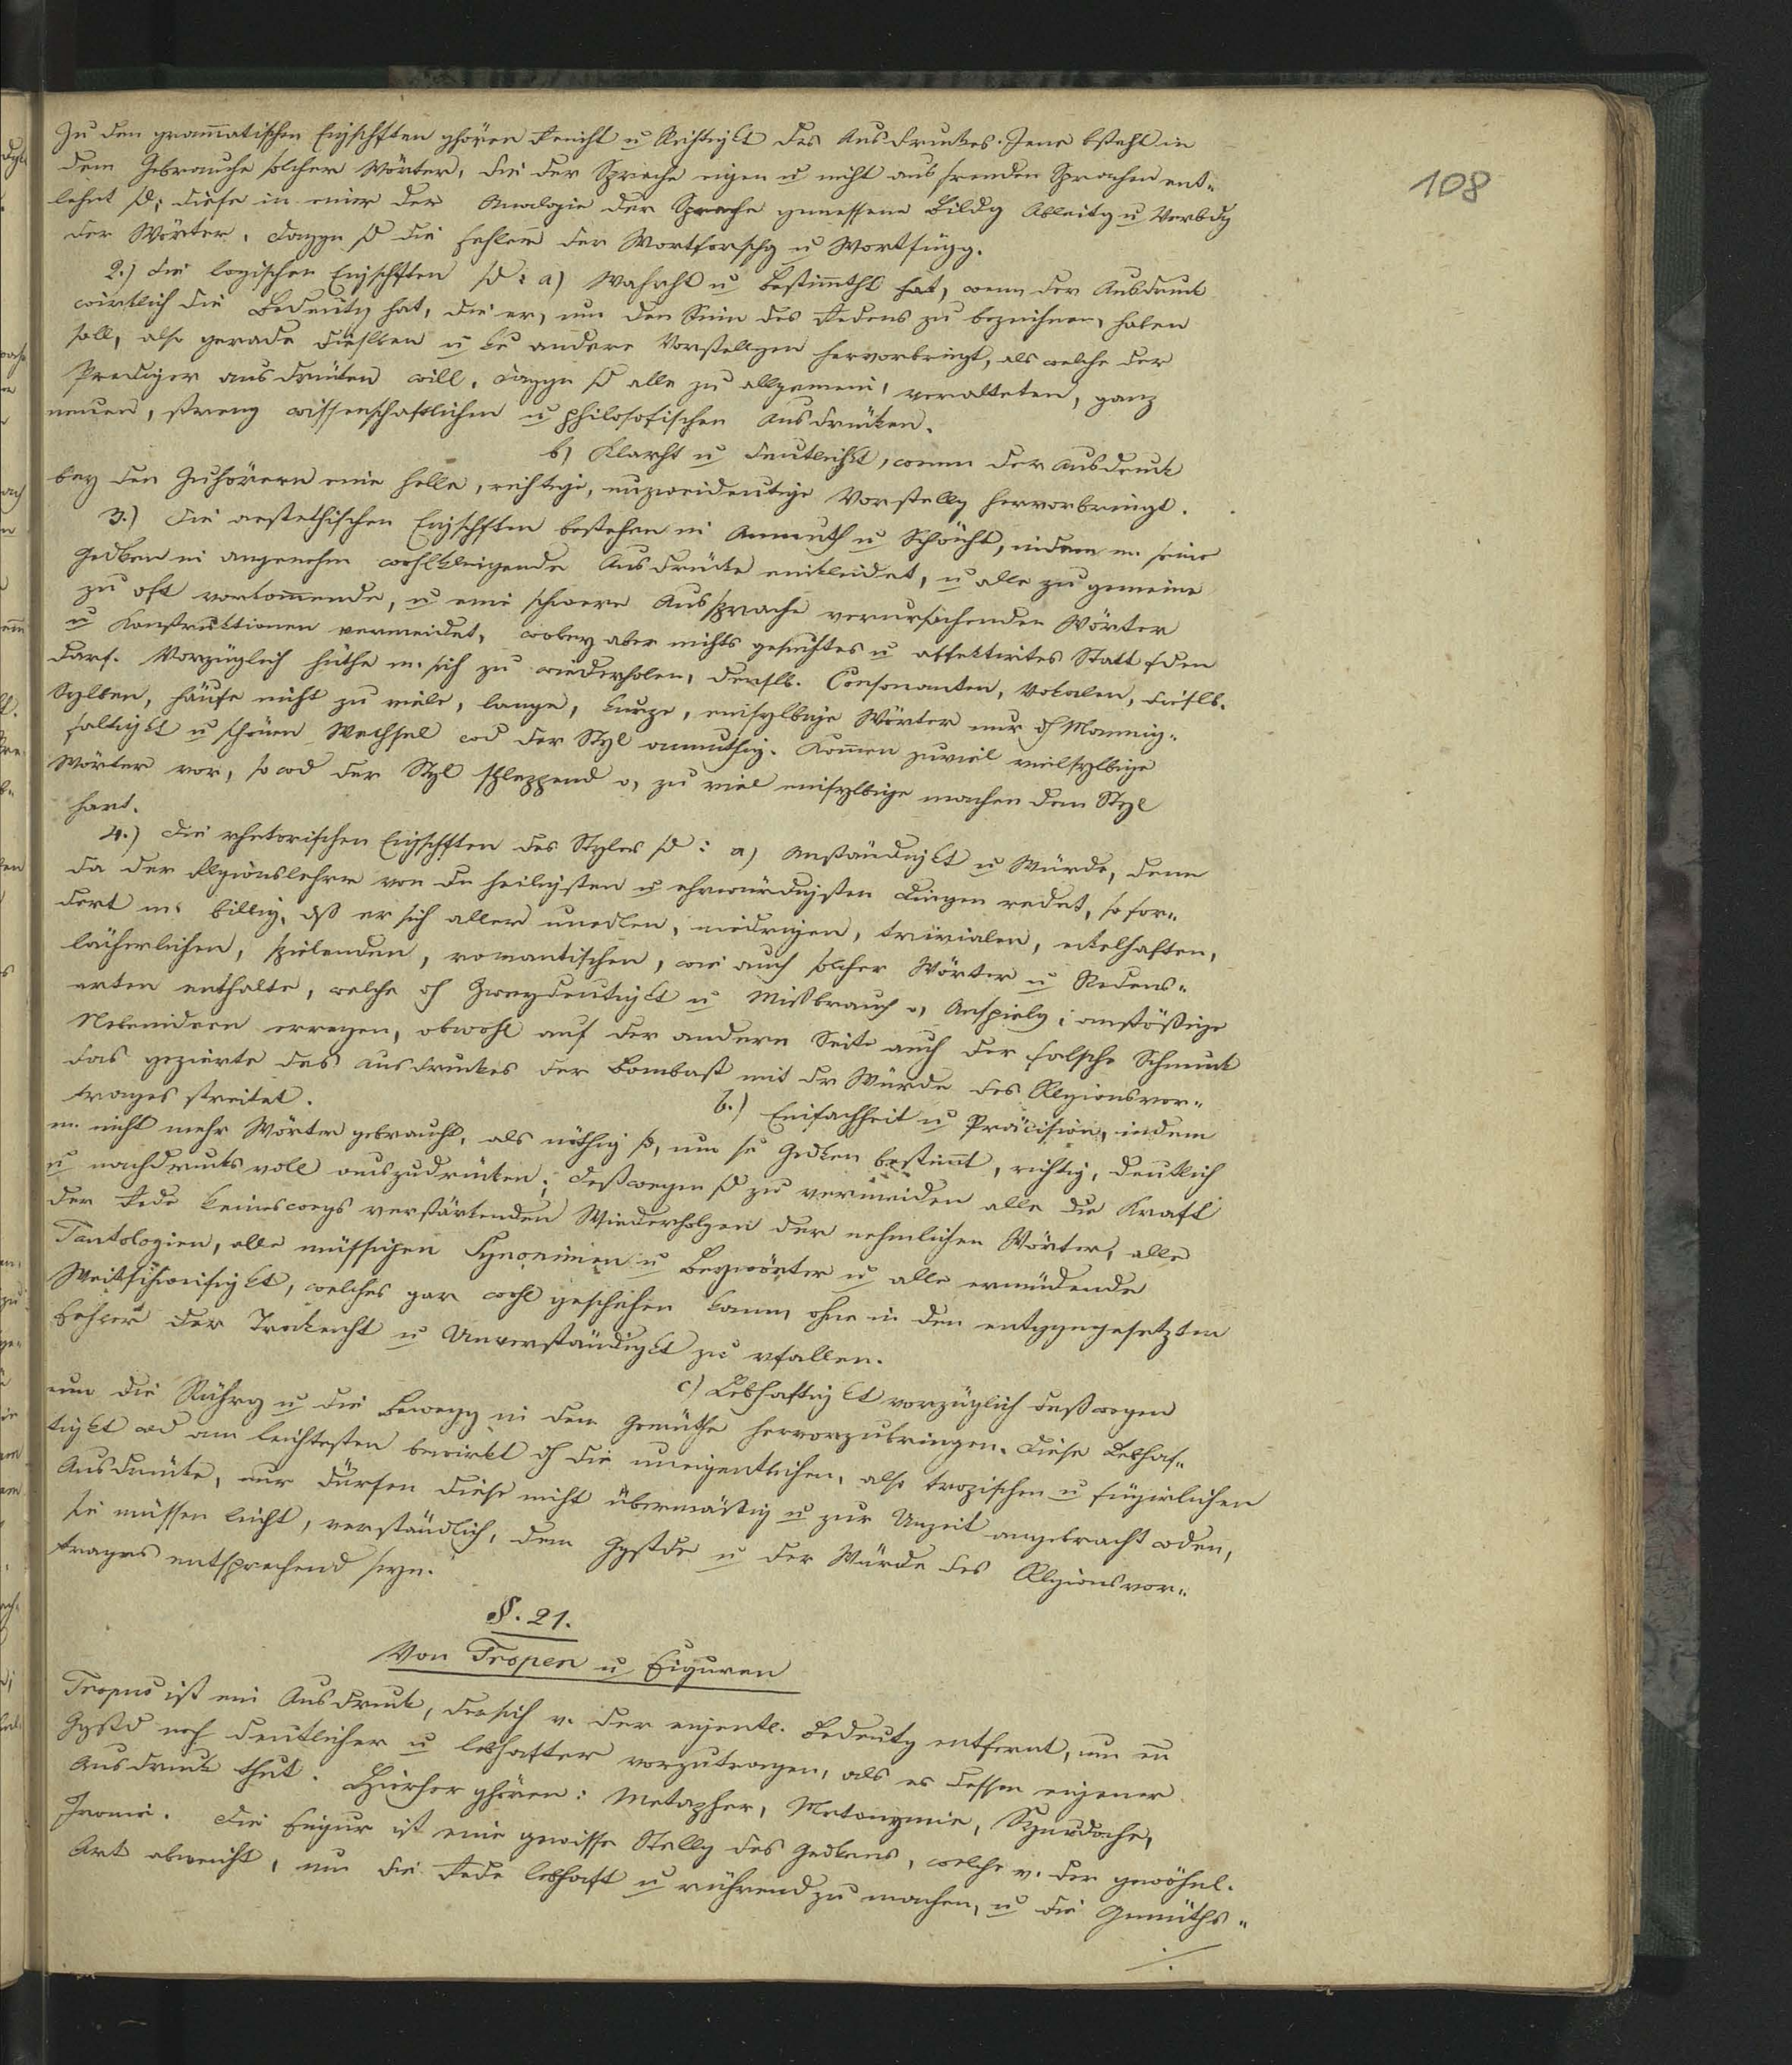 108
Zu den grammatischen Eigschften ghören Reinht u Richtigkt des Ausdruckes. Jene bsteht in
dem Gebrauche solcher Wörter, die der Sprache eigen u nicht aus fremden Sprachen ent-
lehnt sd; diese in einer der Analogie der Sprache gemessene Bildg Ableitg u Verbdg
der Wörter. Daggn sd die Fehler der Wortforschg u Wortfügg.
2.) Die logischen Eigschften sd: a) Wahrht u Bestimtht hat, wenn der Ausdruck
wirklich die Bedeutg hat, die er, um den Sinn des Redens zu bezeichnen, haben
soll, also gerade dieselben u ke andere Vorstellgen hervorbringt, als welche der
Prediger ausdrücken will. Daggn sd alle zu allgemein, veralteten, ganz
neuen, streng wissenschaftlichen u philosofischen Ausdrücken.
b) Klarht u Deutlichkt, wenn der Ausdruck
bey den Zuhörern eine helle, richtige, unzweideutige Vorstellg hervorbringt.
3.) Die aestethischen Eigschften bestehen in Anmuth u Schönht, indem m. seine
Gedken in angenehm wohlklingende Ausdrücke einkleidet, u alle zu gemeine
zu oft vorkommende, u eine schwere Aussprache verursachenden Wörter
u Konstruktionen vermeidet, wobey aber nichts gesuchtes u affektirtes Statt fden
darf. Vorzüglich hüthe m. sich zu wiederholen, derslb. Consonanten, Vokalen, dieslb.
Sylben, häufe nicht zu viele, lange, kurze, einsylbige Wörter nur dh Mannig-
faltigkt u schönen Wechsel wd der Styl anmuthig. Kommen zuviel vielsylbige
Wörter vor, so wd der Styl schleppend o, zu viel einsylbige machen den Styl
hart.
4.) Die rhetorischen Eigschften des Styles sd: a) Anständigkt u Würde, denn
da der Rlgionslehrer von dn heiligsten u ehrwürdigsten Dingen redet, so for-
dert m. billig, dß er sich aller unedlen, niedrigen, trivialen, ekelhaften,
lächerlichen, spielenden, romantischen, wie auch solcher Wörter u Redens-
arten enthalte, welche dh Zweydeutigkt u Mißbrauch o, Anspielg, anstößige
Nebenideen erregen, obwohl auf der andern Seite auch der falsche Schmuck
das gezierte des Ausdruckes der Bombast mit dr Würde des Rlgionsvor-
trages streitet.
b.) Einfachheit u Präcision, indem
m. nicht mehr Wörter gebraucht, als nöthig sd, um se Gedken bestimt, richtig, deutlich
u nachdrucksvoll auszudrücken; deßwegen sd zu vermeiden alle die Kraft
der Rede keineswegs verstärkenden Wiederholgen der nehmlichen Wörter, alle
Tautologien, alle müssigen Synonimien u Beywörter u alle ermüdende
Weitschweifigkt, welches gar wohl geschehen kann, ohne in den entggngesetzten
Fehler der Trokenht u Unverständigkt zu vfallen.
c) Lebhaftigkt vorzüglich deßwegen
um die Rührg u die Bewegg in dem Gemüthe hervorzubringen. Diese Lebhaf-
tigkt wd am leichtesten bewirkt dh die uneigentlichen, also tropischen u figürlichen
Ausdrücke, nur dürfen diese nicht übermässig u zur Unzeit angebracht wden,
sie müssen leicht, verständlich, dem Ggstde u der Würde des Rlgionsvor-
trages entsprechend seyn.
§. 21.
Von Tropen u Figuren
Tropus ist ein Ausdruck, der sich v. der eigentl. Bedeutg entfernt, um en
Ggstd noch deutlicher u lebhafter vorzutragen, als es dessen eigener
Ausdruck thut. Hierher ghören: Metapher, Metonymie, Synedoche,
Ironie. Die Figur ist eine gewisse Stellg des Gedkens, welche v. der gewöhnl.
Art abweicht, um die Rede lebhaft u rührend zu machen, u die Gemüths-
./.